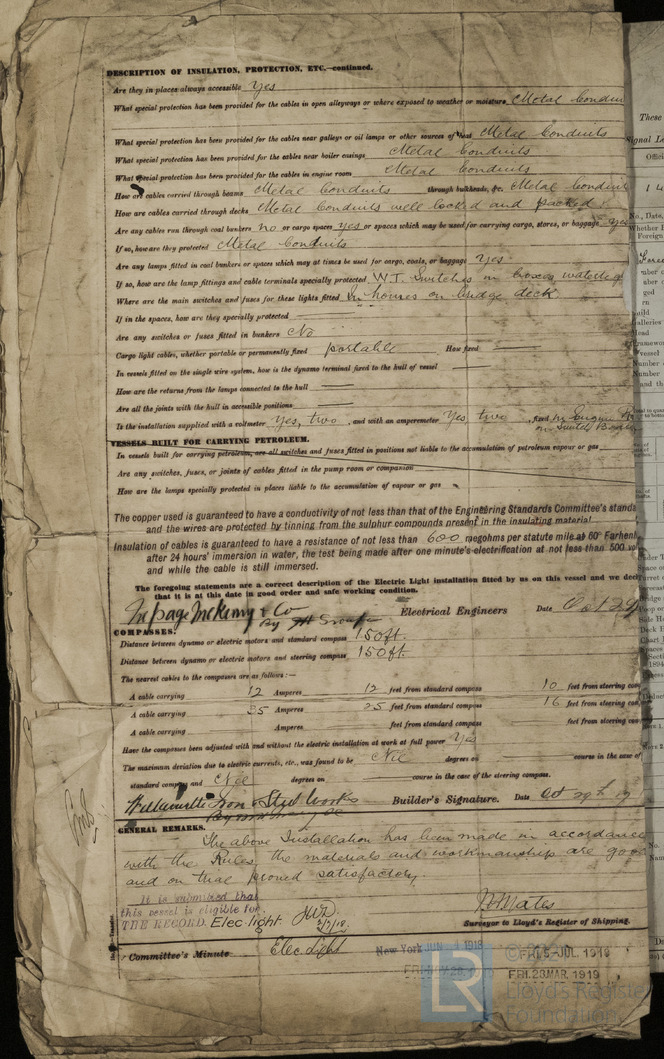 DESCRIPTION OF INSULATION, PROTECTION, ETC.—continued.
Are they in places always accessible Yes
What special protection has been provided for the cables in open alleyways or where exposed to weather or moisture Metal Condui
What special protection has been provided for the cables near galleys or oil lamps or other sources of heat Metal Conduits
What special protection has been provided for the cables near boiler casings Metal Conduits
What special protection has been provided for the cables in engine room Metal Conduits
How are cables carried through beams Metal Conduits through bulkheads, &c. Metal Conduit
How are cables carried through decks Metal Conduits well locked and packed
Are any cables run through coal bunkers no or cargo spaces yes or spaces which may be used for carrying cargo, stores, or baggage yes
If so, how are they protected Metal Conduits
Are any lamps fitted in coal bunkers or spaces which may at times be used for cargo, coals, or baggage Yes
If so, how are the lamp fittings and cable terminals specially protected W.T. Switches on boxes, waterti
Where are the main switches and fuses for these lights fitted In houses on bridge deck
If in the spaces, how are they specially protected
Are any switches or fuses fitted in bunkers No
Cargo light cables, whether portable or permanently fixed portable How fixed
In vessels fitted on the single wire system, how is the dynamo terminal fixed to the hull of vessel
How are the returns from the lamps connected to the hull
Are all the joints with the hull in accessible positions
Is the installation supplied with a voltmeter Yes, two, and with an amperemeter Yes two, fixed In Engine R
on Switch Board
VESSELS BUILT FOR CARRYING PETROLEUM.
In vessels built for carrying petroleum, are all switches and fuses fitted in positions not liable to the accumulation of petroleum vapour or gas
Are any switches, fuses, or joints of cables fitted in the pump room or companion
How are the lamps specially protected in places liable to the accumulation of vapour or gas
The copper used is guaranteed to have a conductivity of not less than that of the Engineering Standards Committee's stand
and the wires are protected by tinning from the sulphur compounds present in the insulating material
Insulation of cables is guaranteed to have a resistance of not less than 600 megohms per statute mile at 60° Farhenh
after 24 hours' immersion in water, the test being made after one minute's electrification at not less than 500 vo
and while the cable is still immersed.
The foregoing statements are a correct description of the Electric Light installation fitted by us on this vessel and we dec
that it is at this date in good order and safe working condition.
Nepage McKenny & Co Electrical Engineers Date Oct 29
By
COMPASSES.
Distance between dynamo or electric motors and standard compass 150 ft.
Distance between dynamo or electric motors and steering compass 150 ft.
The nearest cables to the compasses are as follows:—
A cable carrying 12 Amperes 12 feet from standard compass 10 feet from steering com
A cable carrying 35 Amperes 25 feet from standard compass 16 feet from steering com
A cable carrying Amperes feet from standard compass feet from steering com
Have the compasses been adjusted with and without the electric installation at work at full power Yes
The maximum deviation due to electric currents, etc., was found to be Nil degrees on course in the case of
standard compass and Nil degrees on course in the case of the steering compass.
Willamette Iron & Steel Works Builder's Signature. Date Oct 29th 19
GENERAL REMARKS.
The above Installation has been made in accordance
with the Rules, the materials and workmanship are good
and on trial proved satisfactory.
It is submitted that
this vessel is eligible for
THE RECORD. Elec. light. 3/7/19.
Surveyor to Lloyd's Register of Shipping.
Committee's Minute Elec Light New York JUN 1919 FRI. 5-JUL. 1919
FRI. 28 MAR. 1919
LR
Lloyd's Register
Foundation